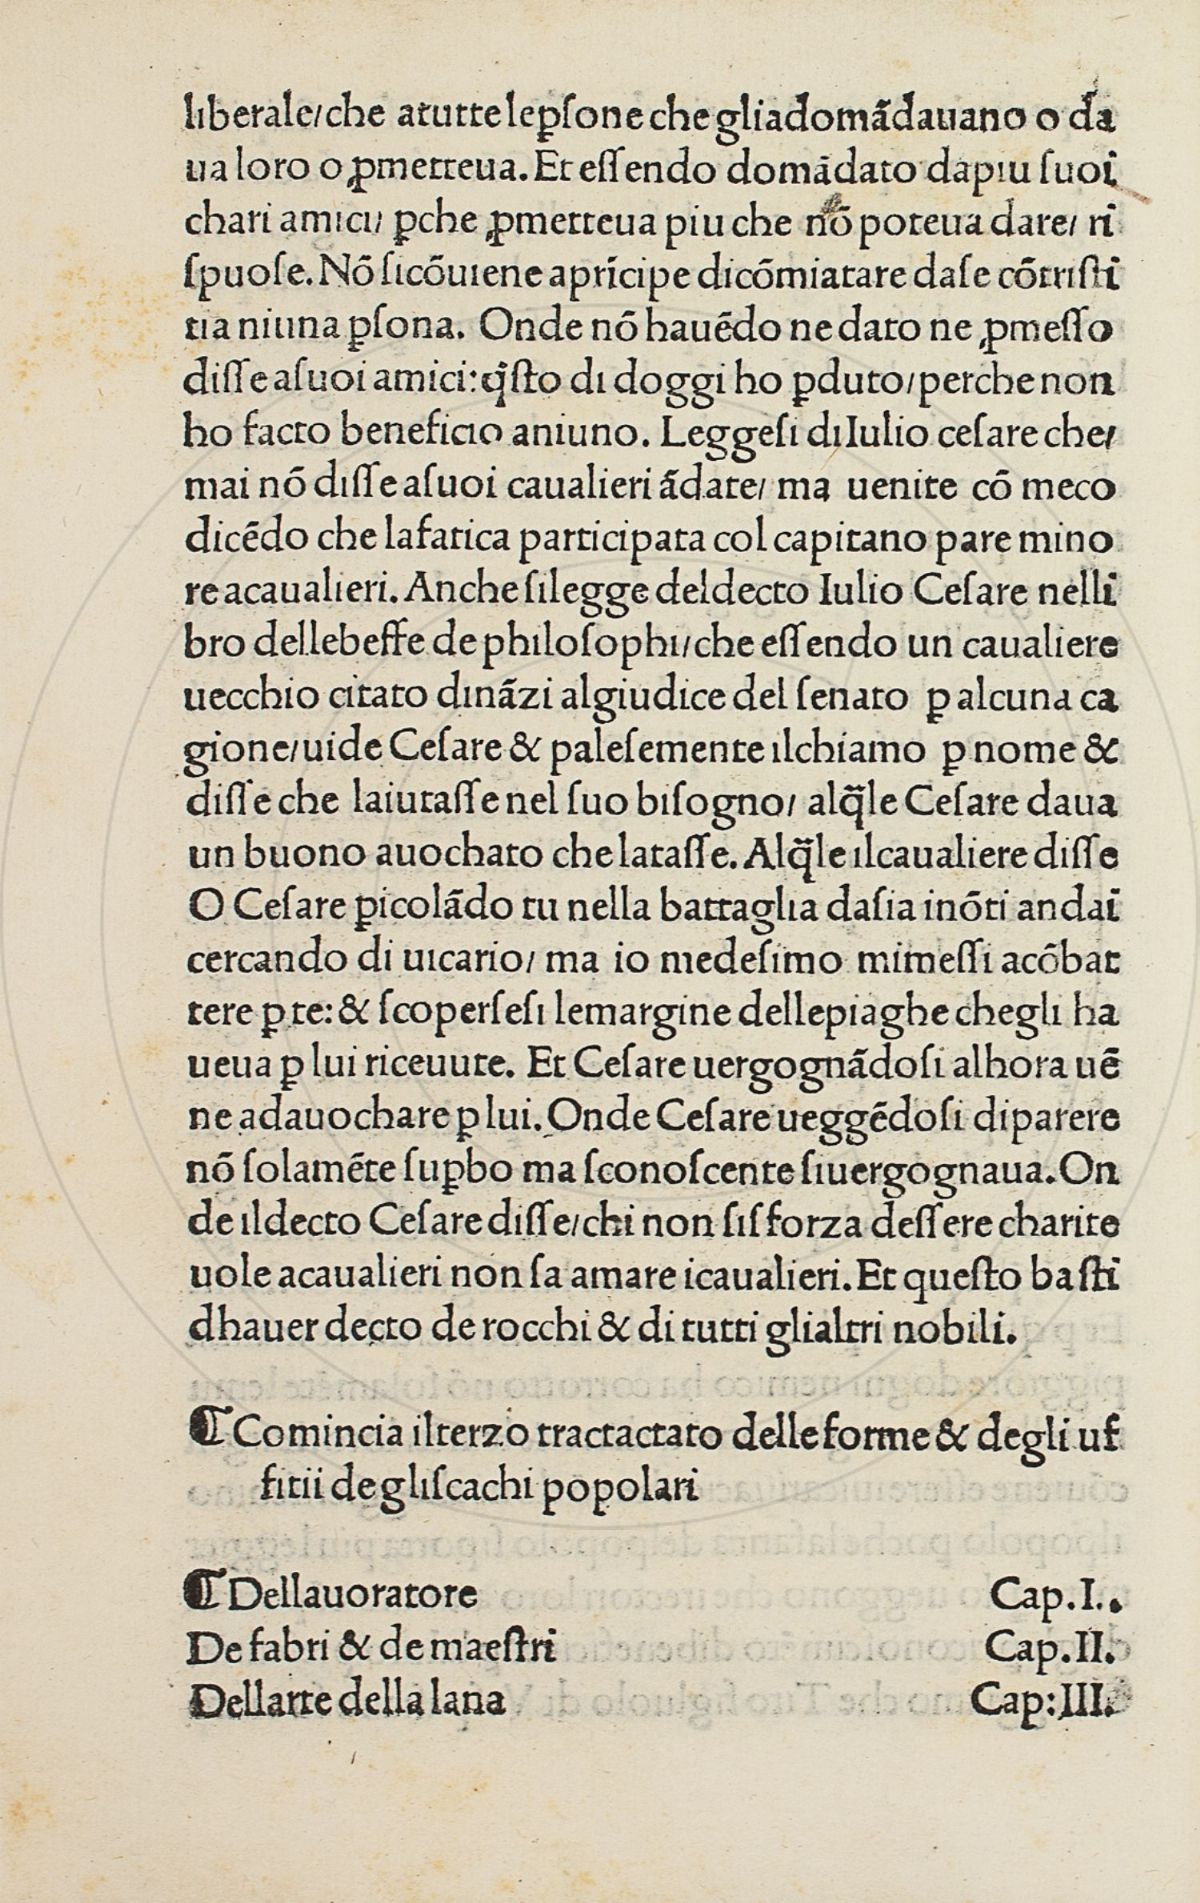 liberale/che atutte leꝑſone che gliadomādauano o da
ua loro o ꝓmetteua. Et eſſendo domādato dapiu ſuoi
chari amici/ ꝑche ꝓmetteua piu che nō poteua dare/ ri
ſpuoſe. Nō ſicōuiene aprīcipe dicōmiatare daſe cōtriſti
tia niuna ꝑſona. Onde nō hauēdo ne dato ne ꝓmeſſo
diſſe aſuoi amici: q̄ſto di doggi ho ꝑduto/perche non
ho facto beneficio aniuno. Leggeſi diIulio ceſare che/
mai nō diſſe aſuoi caualieri ādate/ ma uenite cō meco
dicēdo che lafatica participata col capitano pare mino
re acaualieri. Anche ſilegge deldecto Iulio Ceſare nelli
bro dellebeffe de philoſophi/che eſſendo un caualiere
uecchio citato dināzi algiudice del ſenato ꝑ alcuna ca
gione/uide Ceſare & paleſemente ilchiamo ꝑ nome &
diſſe che laiutaſſe nel ſuo biſogno/ alq̄le Ceſare daua
un buono auochato che lataſſe. Alq̄le ilcaualiere diſſe
O Ceſare ꝑicolādo tu nella battaglia daſia inōti andai
cercando di uicario/ ma io medeſimo mimeſſi acōbat
tere ꝑ te: & ſcoperſeſi lemargine dellepiaghe chegli ha
ueua ꝑ lui riceuute. Et Ceſare uergognādoſi alhora uē
ne adauochare ꝑ lui. Onde Ceſare ueggēdoſi diparere
nō ſolamēte ſuꝑbo ma ſconoſcente ſiuergognaua. On
de ildecto Ceſare diſſe/chi non ſiſforza deſſere charite
uole acaualieri non ſa amare icaualieri. Et queſto baſti
dhauer decto de rocchi & di tutti glialtri nobili.
¶ Comincia ilterzo tractactato delle forme & degli uf
fitii de gliſcachi popolari
¶ Dellauoratore Cap. I..
De fabri & de maeſtri Cap. II.
Dellarte della lana Cap: III.